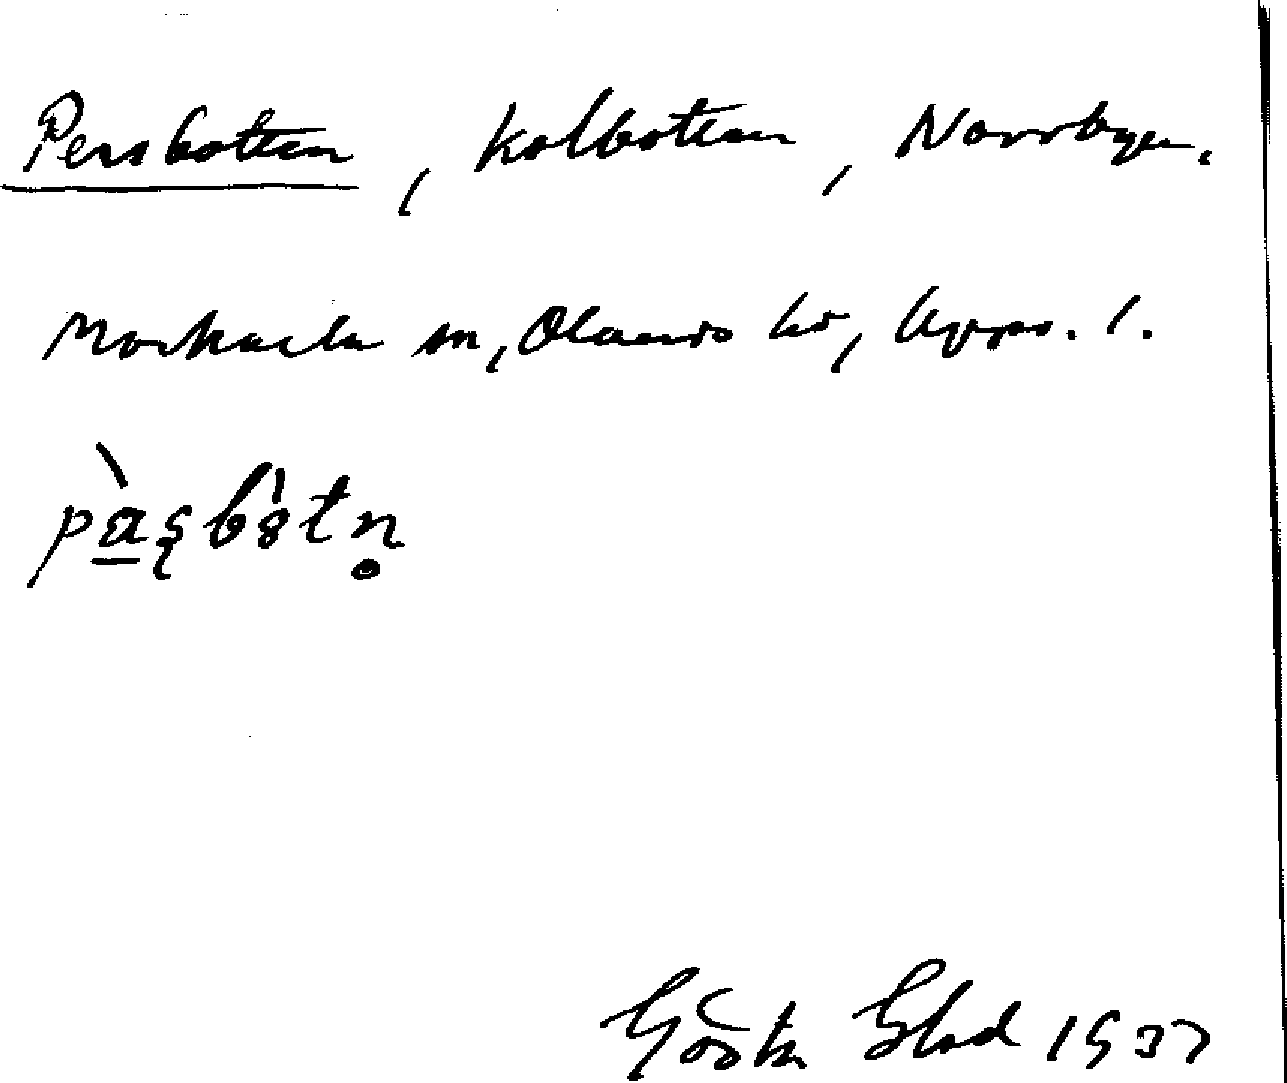 Persbotten, Kolbotten, Norrbyn.
Morkarla sn, Olands hd, Upps. l.
Gösta Glad 1937